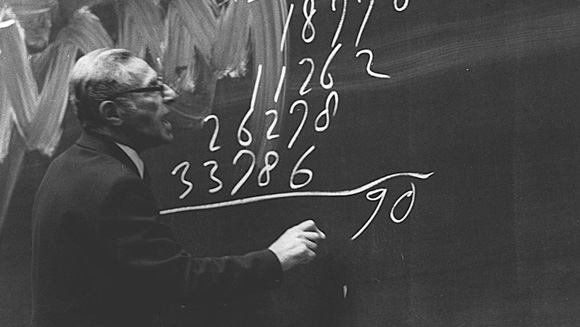 18770
11262
26278
33786
90